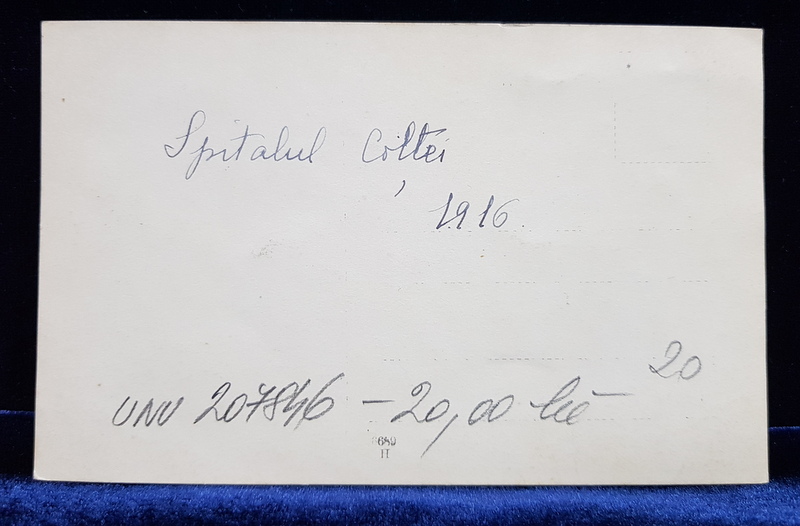 Spitalul Colței
1916.
20
UNU 207846 – 20,00 lei
689
II